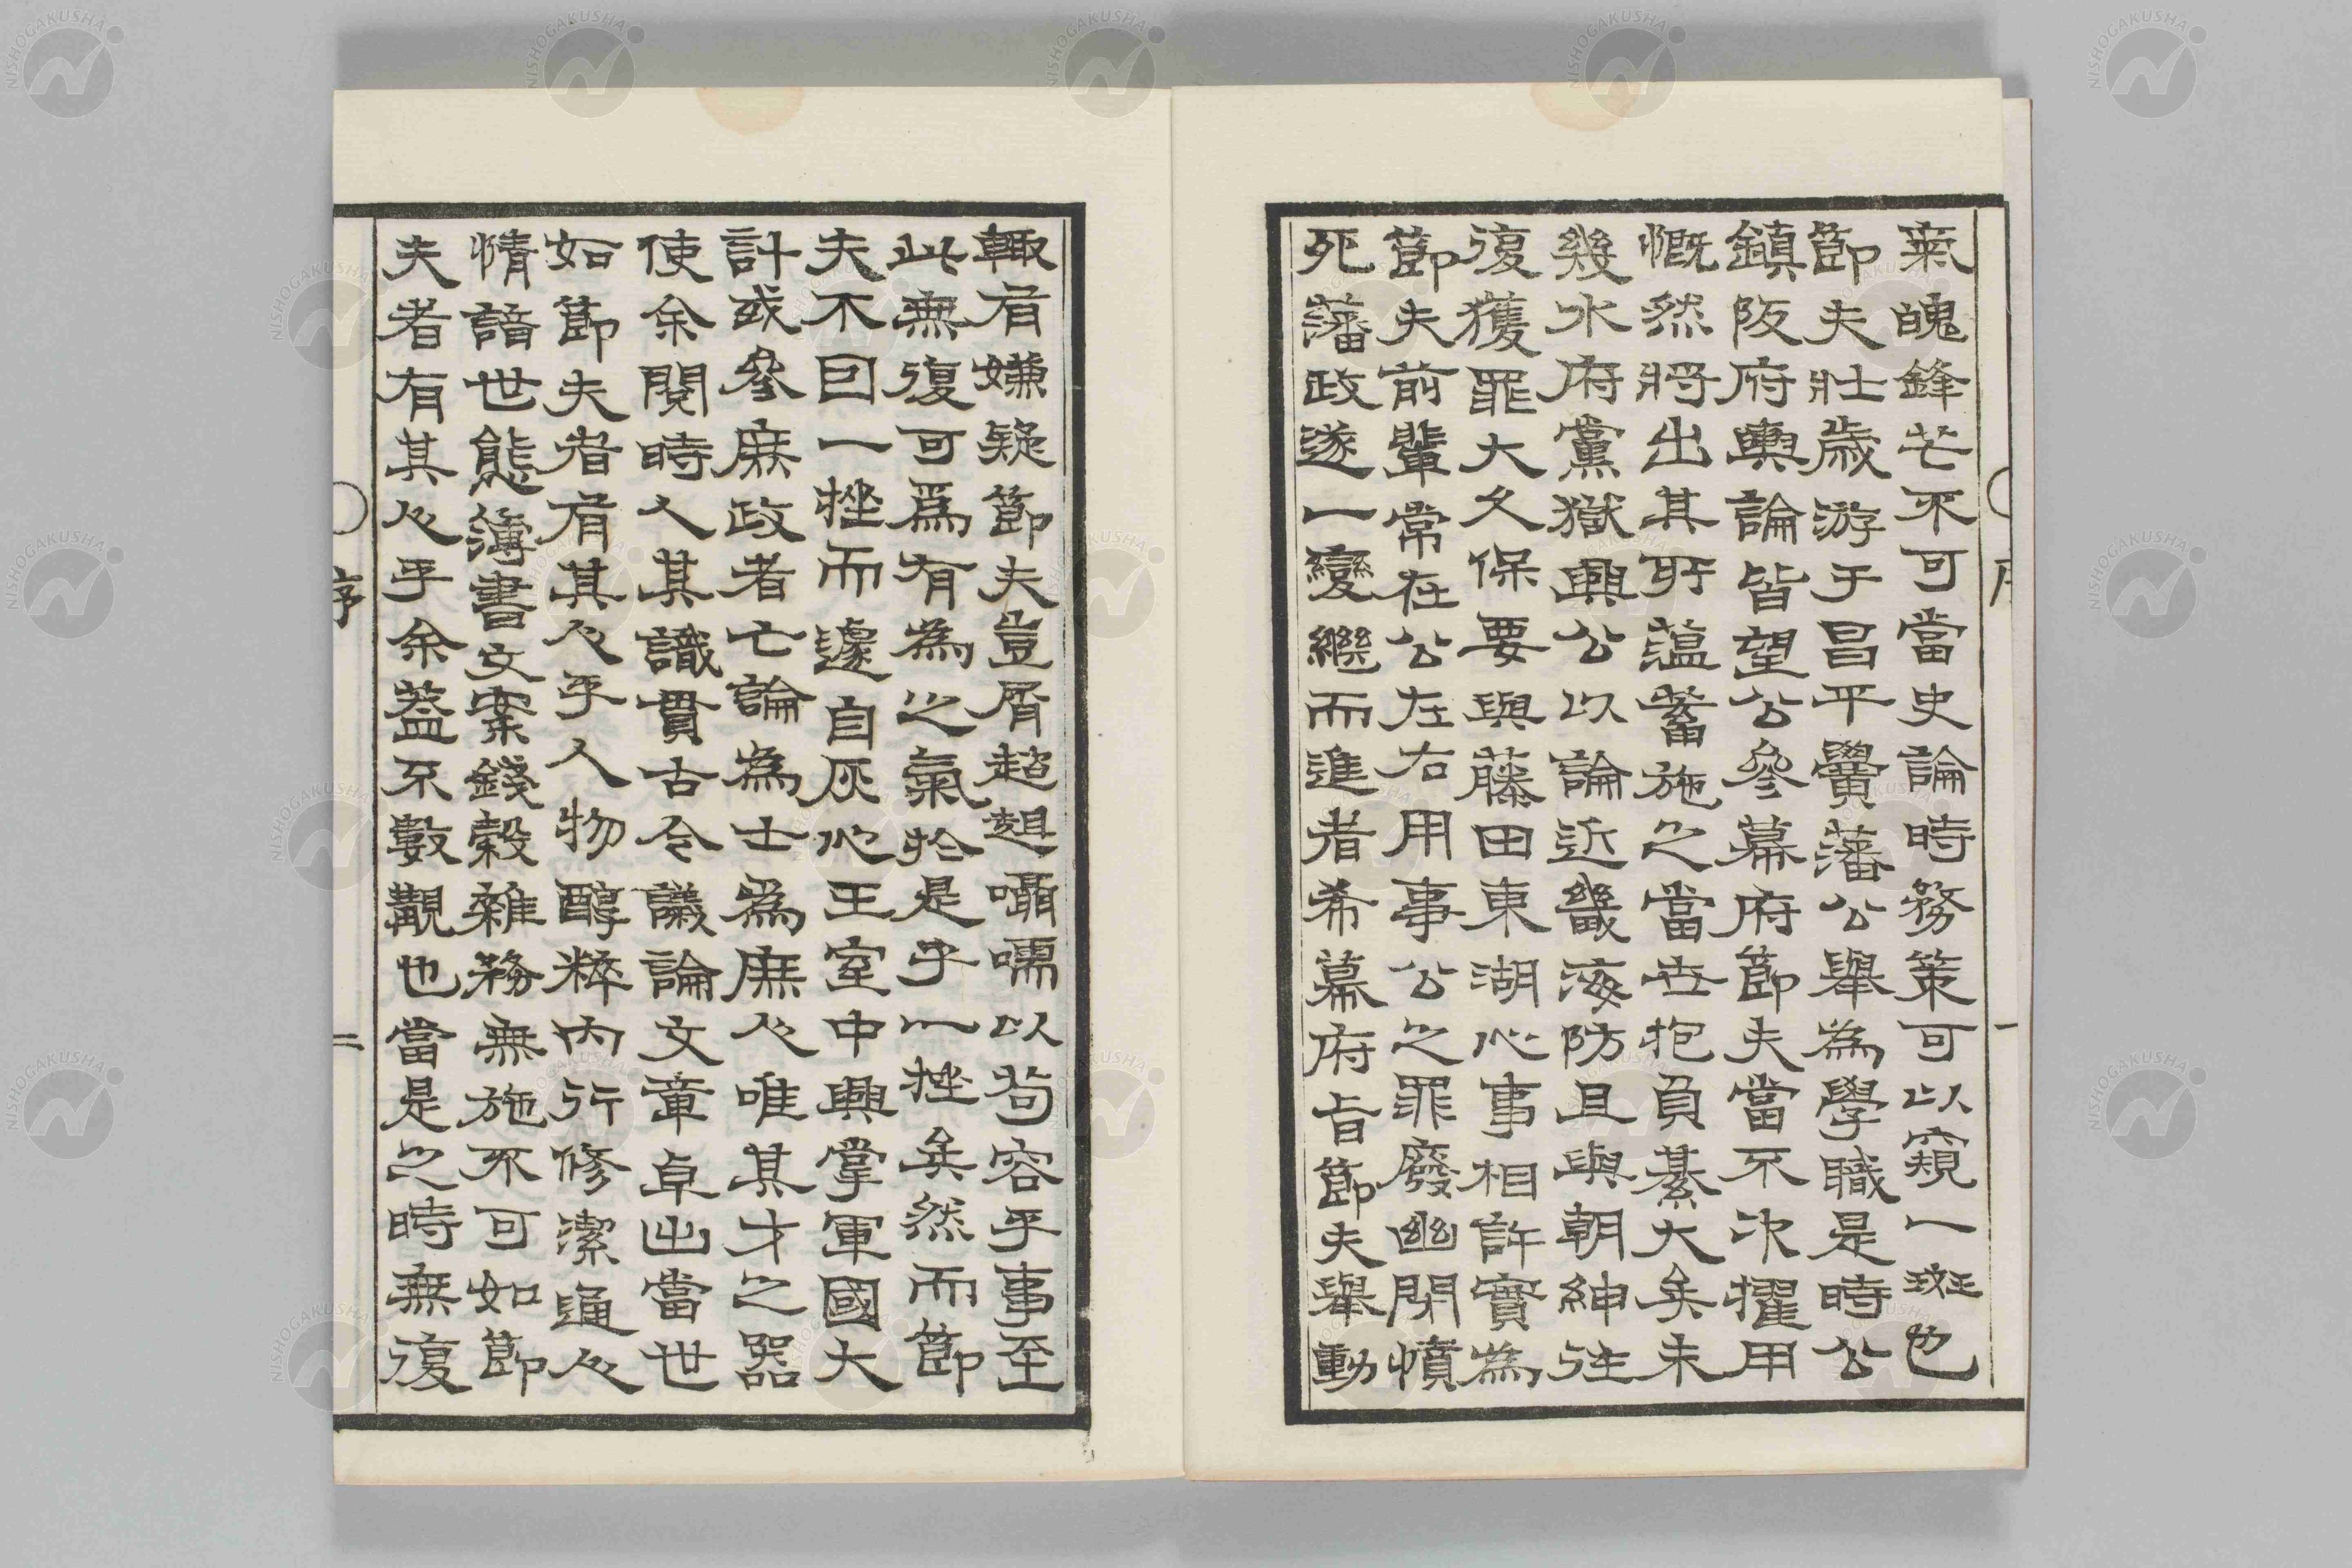 氣魄鋒芒不可當史論時務策可以窺一斑也
節夫壯歲游于昌平黌藩公舉為學職是時公
鎮阪府輿論皆望公參幕府節夫當不次擢用
慨然將出其所薀蓄施之當世抱負綦大矣未
幾水府黨獄興公以論近畿海防且與朝紳往
復獲罪大久保要與藤田東湖心事相許實為
節夫前輩常在公左右用事公之罪廢幽閉憤
死藩政遂一變繼而進者希幕府旨節夫舉動
輙有嫌疑節夫豈屑趦趄囁嚅以苟容乎事至
此無復可爲有為之氣於是乎一挫矣然而節
夫不曰一挫而遽自灰心王室中興掌軍國大
計或參廡政者亡論為士爲庶人唯其才之器
使余閱時人其識貫古今議論文章卓出當世
如節夫者有其人乎人物醇粹內行修潔通人
情諳世態簿書文案錢穀雜務無施不可如節
夫者有其人乎余葢不數覯也當是之時無復
序
一
序
二
NISHOGAKUSHA